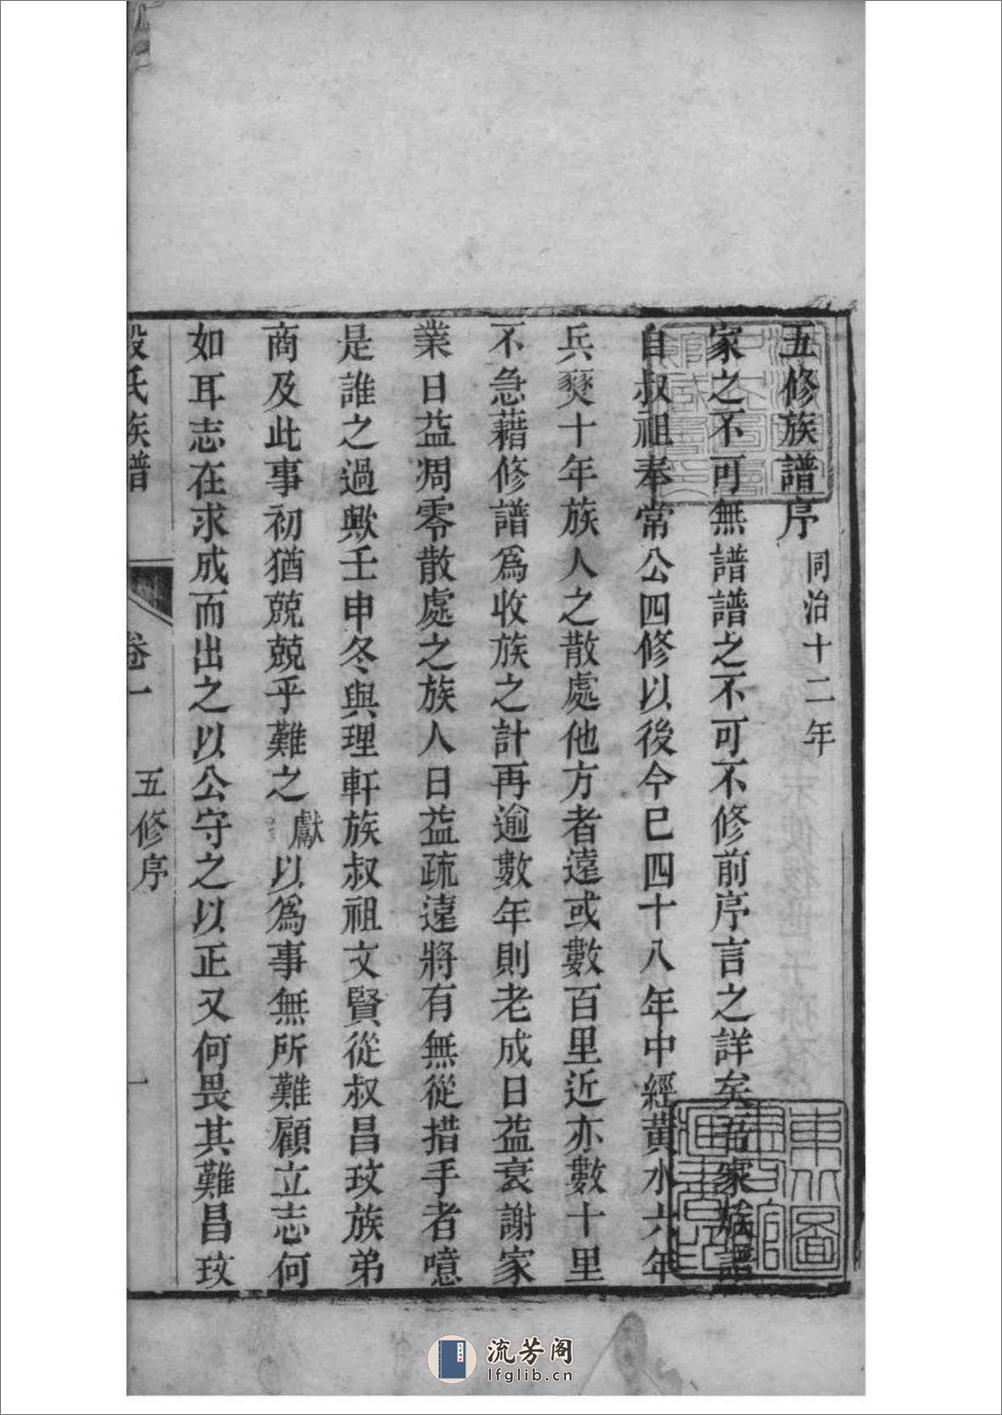 五修族譜序 同治十二年
家之不可無譜譜之不可不修前序言之詳矣吾家族譜
自叔祖奉常公四修以後今巳四十八年中經黃水六年
兵燹十年族人之散處他方者遠或數百里近亦數十里
不急藉修譜爲收族之計再逾數年則老成日益衰謝家
業日益凋零散處之族人日益疏遠將有無從措手者噫
是誰之過歟壬申冬與理軒族叔祖文賢從叔昌玟族弟
商及此事初猶兢兢乎難之獻以爲事無所難顧立志何
如耳志在求成而出之以公守之以正又何畏其難昌玟
氏族譜
卷一
五修序
一
流芳阁
lfglib.cn